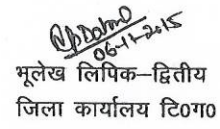 06-11-2015
भूलेख लिपिक–द्वितीय
जिला कार्यालय टि0ग0